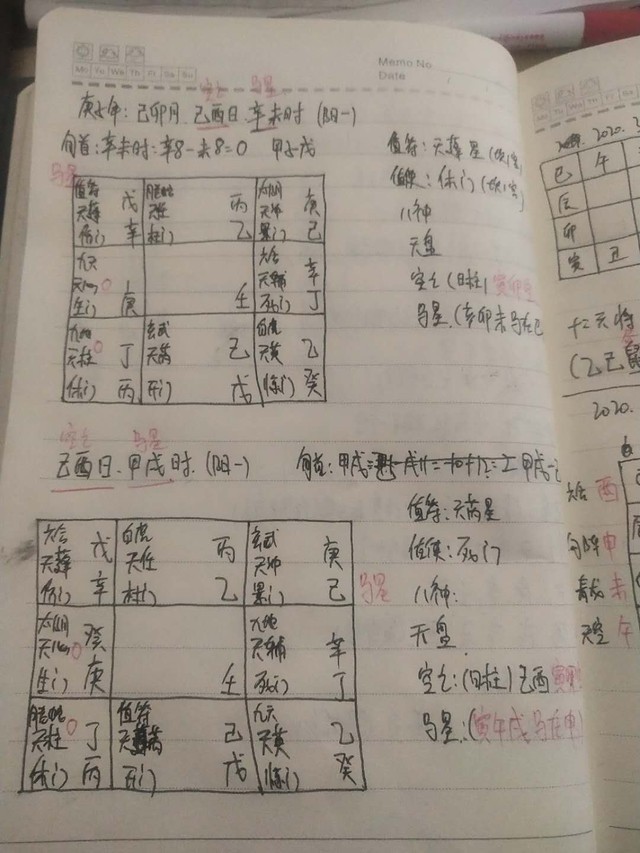 Memo No
Date
Mo Tu We Th Fr Sa Su
空亡 马星
庚子年:己卯月.己酉日.辛未时(阳一)
旬首:辛未时:辛8-未8=0 甲子戊
马星
值符 戊 丙 太阴 庚
天蓬 天任 天冲
伤门 辛 杜门 乙 景门 己
九天 六合 辛
天心 0 天辅
生门 庚 壬 死门 丁
九地 玄武 白虎
天柱 0 丁 天芮 己 天英 乙
休门 丙 开门 戊 惊门 癸
值符:天蓬星
值使:休门
八神
天盘
空亡(日柱)寅卯空
马星.(亥卯未马在巳
空亡 马星
己酉日.甲戌时.(阳一)
旬首:甲戌
六合 戊 白虎 丙 玄武 庚
天蓬 天任 天冲
伤门 辛 杜门 乙 景门 己
马星
太阴 癸 九地 辛
天心 0 天辅
生门 庚 壬 死门 丁
值符 九天
天柱 0 丁 己 天英 乙
休门 丙 开门 戊 惊门 癸
值符:天芮星
值使:死门
八神:
天盘
空亡:(日柱)己酉
马星:(寅午戌马在申)
2020.
巳 午
辰
卯
寅 丑
十二天将
2020.
六合 酉
勾陈 申
青龙 未
天空 午